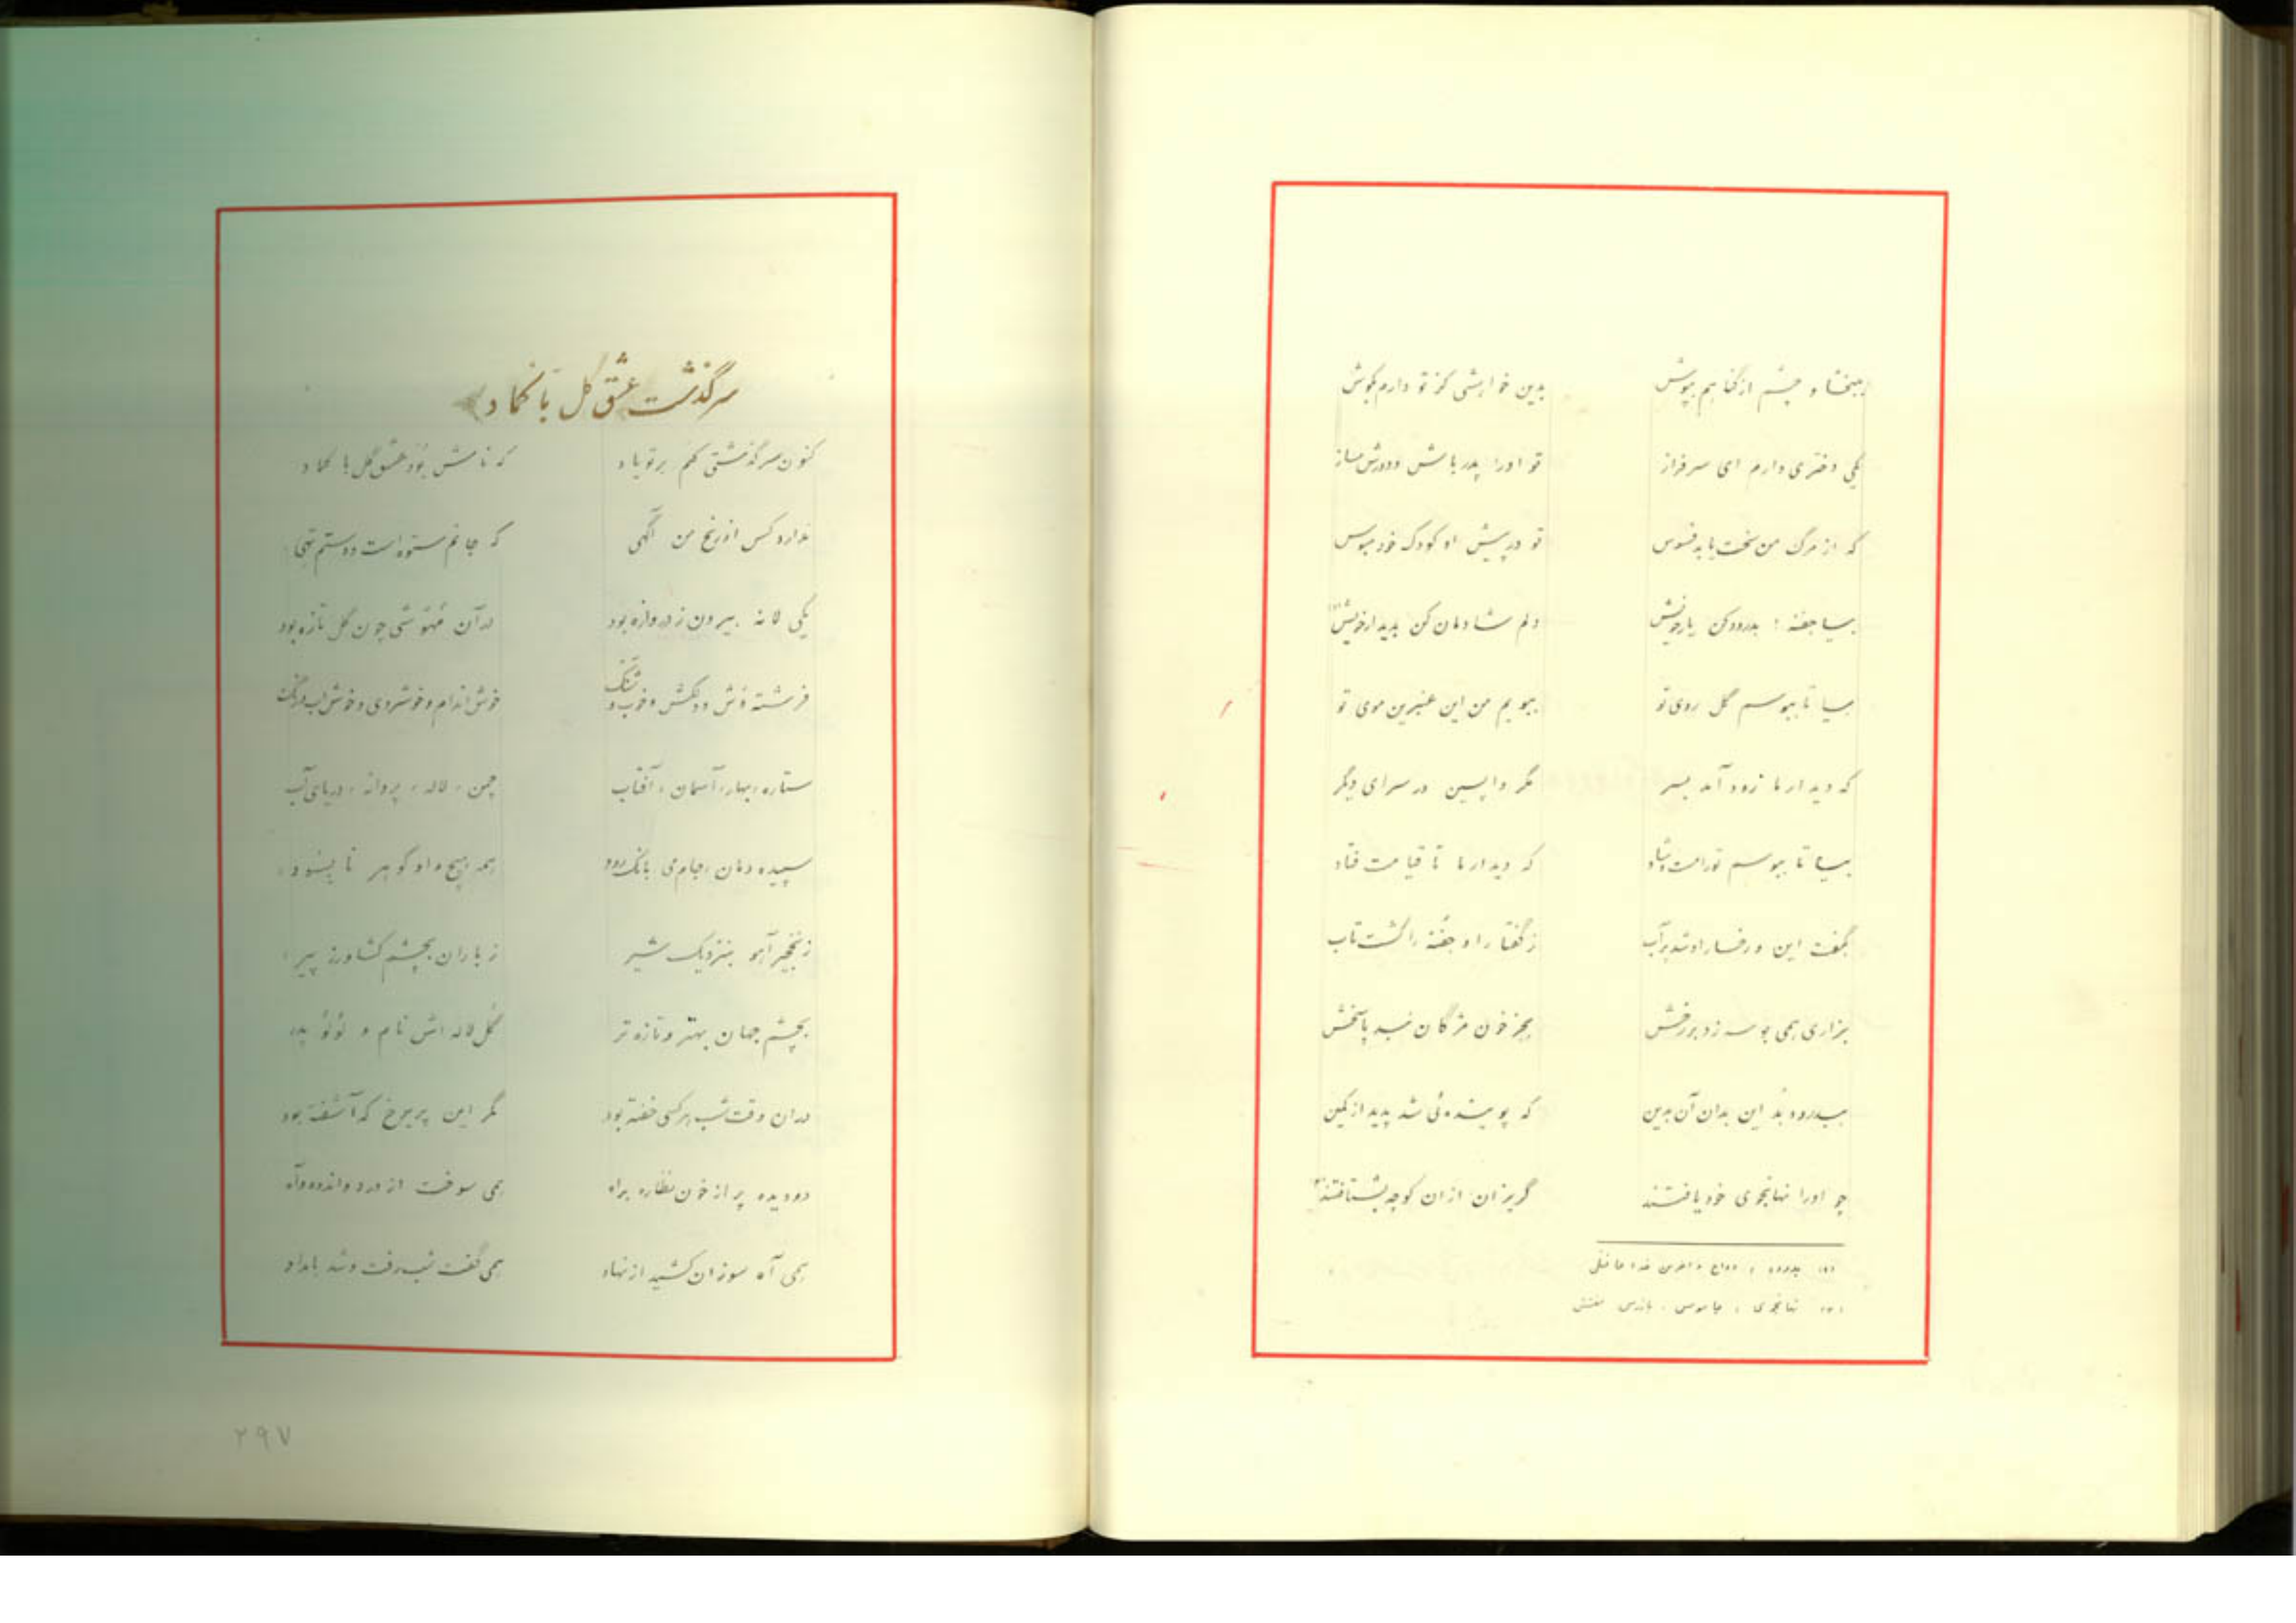 ببخشا و چشم از گناهم بپوش بدین خواهشی کز تو دارم بکوش
یکی دختری دارم ای سرفراز تو او را پدر باش و دورش مساز
که از مرگ من سخت یابد فسوس تو در پیش او کودک خود مبوس
بیا جفته ! بدرود کن یار خویش دلم شادمان کن بدیدار خویش (۱)
بیا تا ببوسم گل روی تو ببویم من این عنبرین موی تو
که دیدار ما زود آمد بسر مگر واپسین در سرای دگر
بیا تا ببوسم تو را مست و شاد که دیدار ما تا قیامت فتاد
بگفت این و رخسار او شد پر آب ز گفتار او جفته را گشت تاب
بزاری همی بوسه زد بر رخش بجز خون مژگان نبد پاسخش
ببدرود بُد این بدان آن بدین که پوینده‌ئی شد پدید از کمین
چو او را نهانجوی خود یافتند گریزان از ان کوچه بشتافتند (۲)
(۱) بدرود ؛ وداع و آخرین خداحافظی
(۲) نهانجوی ؛ جاسوس ، بازرس مفتش
سرگذشت عشق گل بانکماد
کنون سرگذشتی کنم بر تو یاد که نامش بُوَد عشق گل با کماد
ندارد کس از رنج من آگهی که جانم ستوه است و دستم تهی
یکی لانه بیرون ز دروازه بود در آن مَهوَشی چون گل تازه بود
فرشته وَش و دلکش و خوب و شنگ خوش اندام و خوشروی و خوش لب و رنگ
ستاره ، بهار ، آسمان ، آفتاب چمن ، لاله ، پروانه ، دریای آب
سپیده دمان ، جام می بانگ رود همه هیچ و او گوهر نابسود
ز نخجیر آهو بنزدیک شیر ز باران بچشم کشاورز پیر
بچشم جهان بهتر و تازه تر گل لاله اش نام و لؤلؤ پدر
در ان وقت شب هر کسی خفته بود مگر این پریرخ که آشفته بود
دو دیده پر از خون نظاره براه همی سوخت از درد و اندوه و آه
همی آه سوزان کشید از نهاد همی گفت شب رفت و شد بامداد
۲۹۷